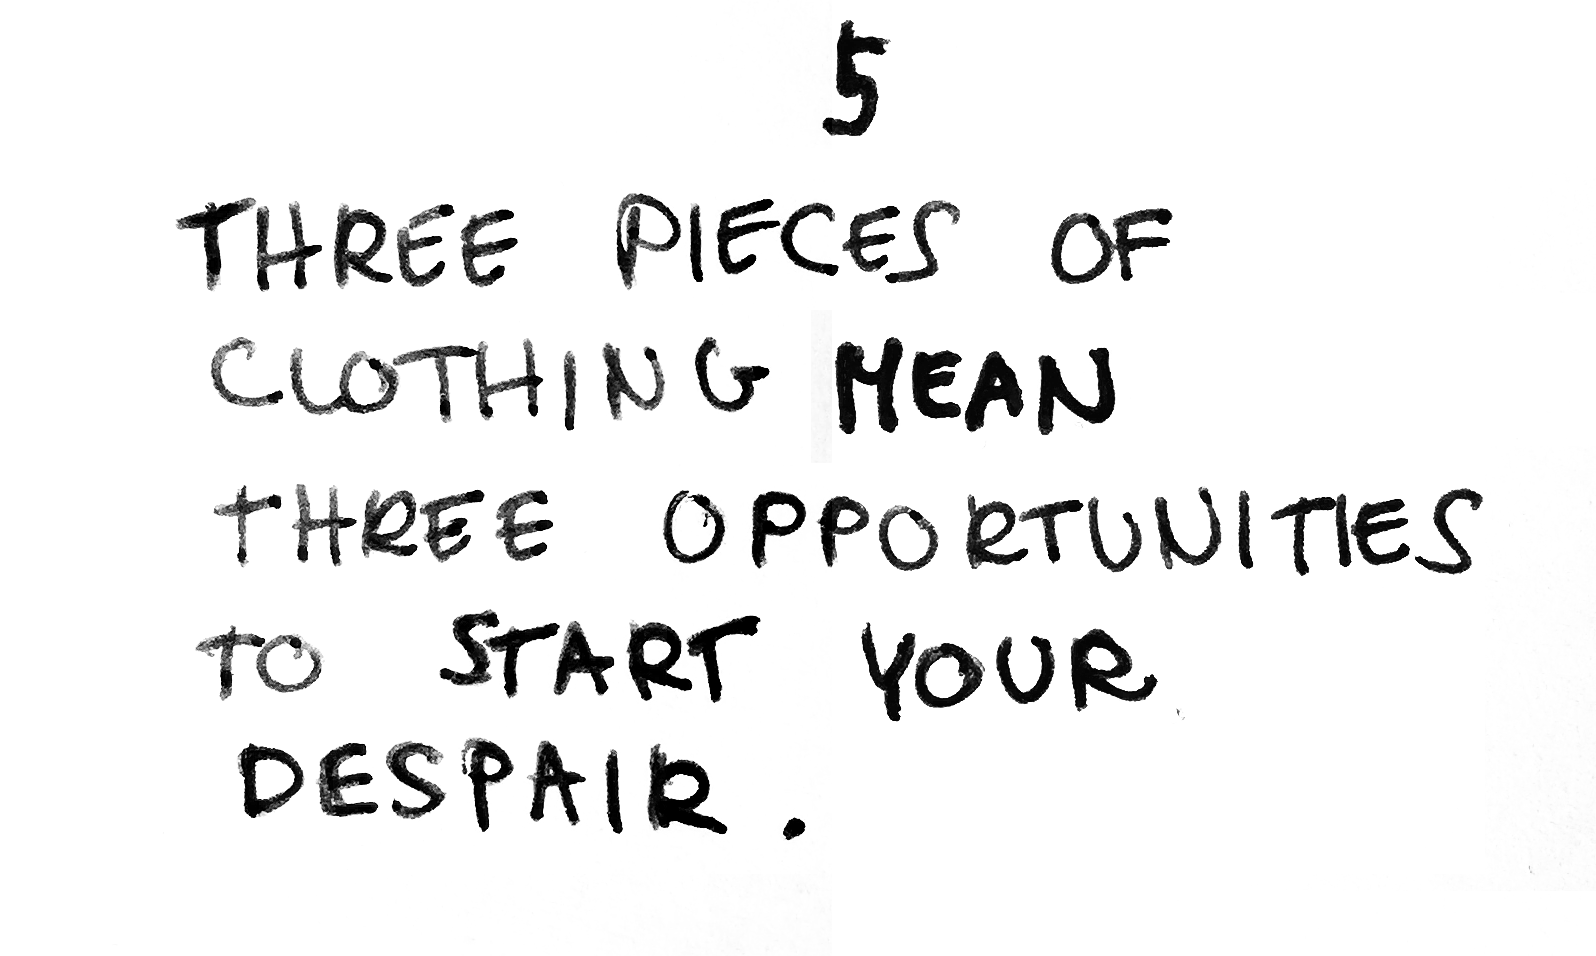 5
THREE PIECES OF
CLOTHING MEAN
THREE OPPORTUNITIES
TO START YOUR
DESPAIR.